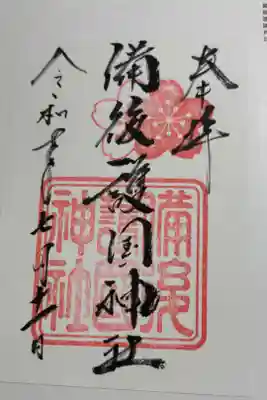 奉拝
備後護國神社
令和年七月十一日
備後
護國
神社